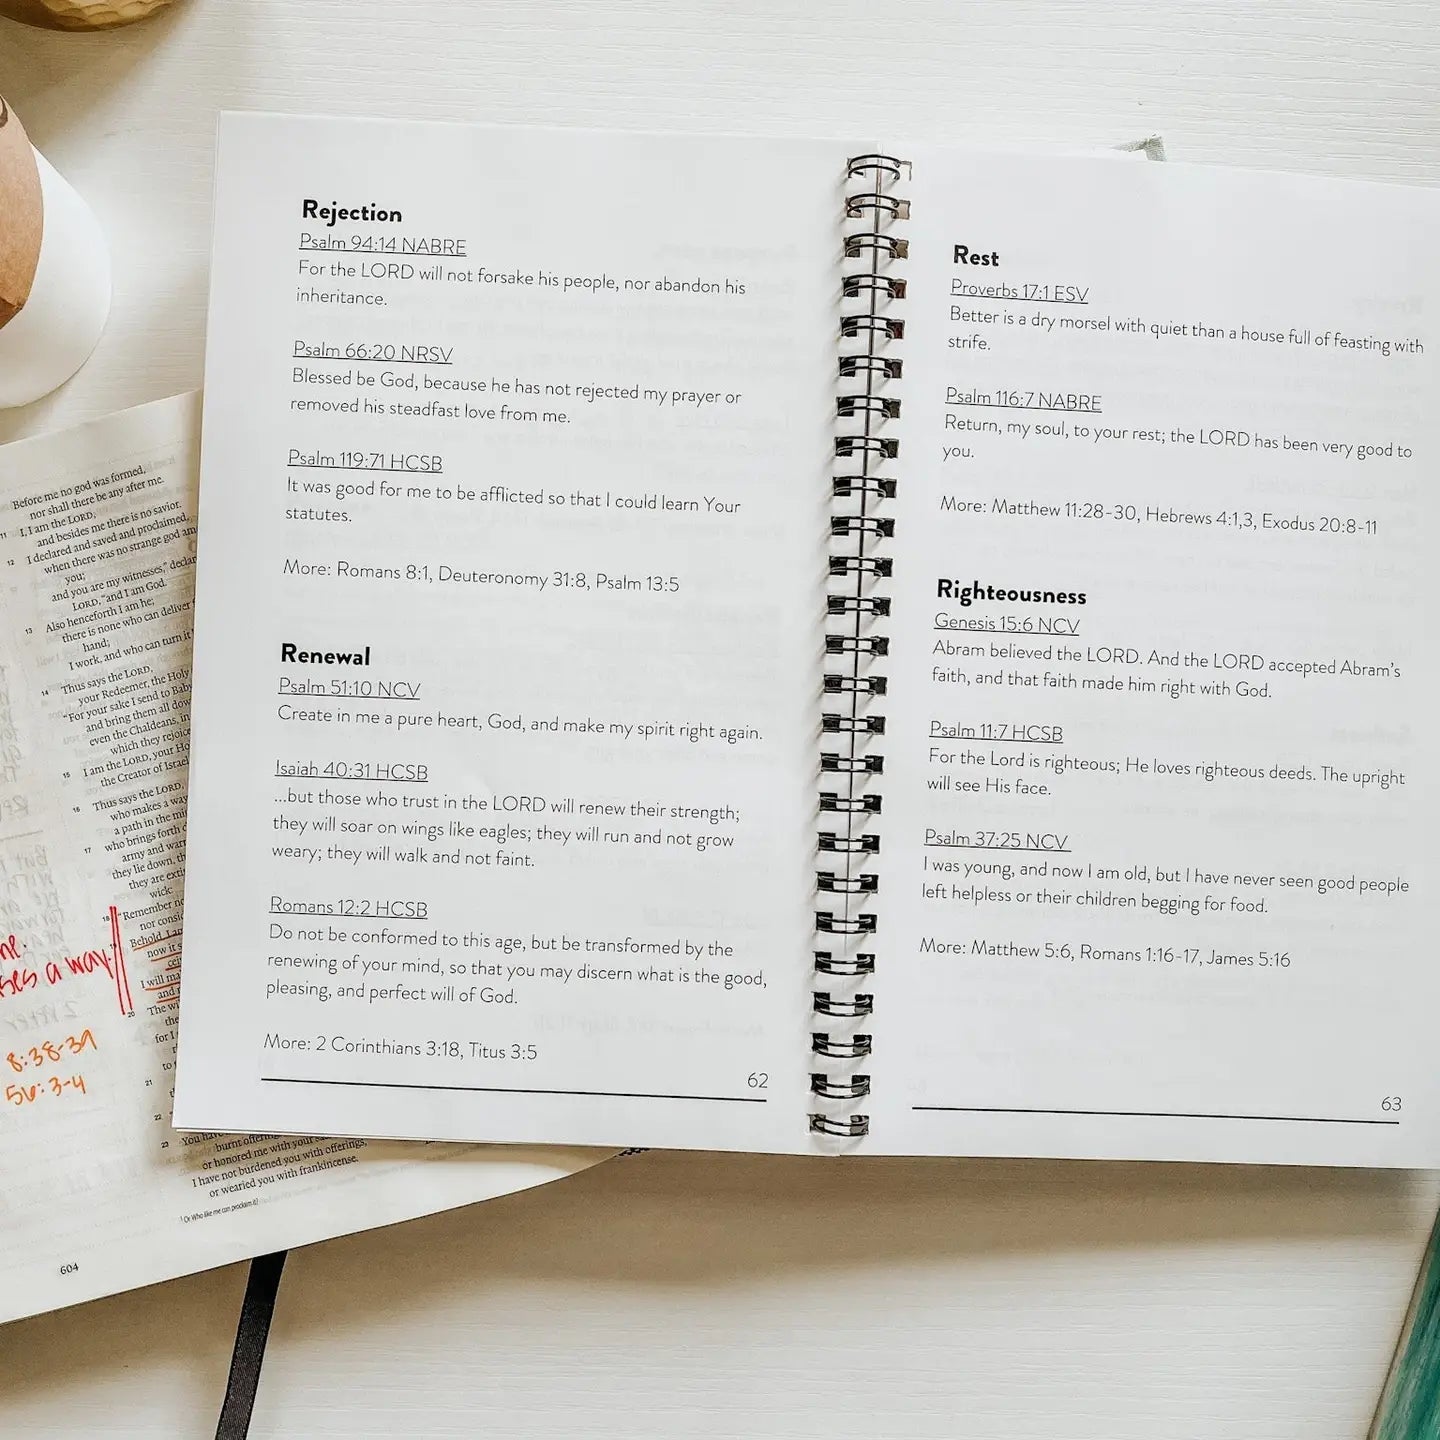 Rejection
Psalm 94:14 NABRE
For the LORD will not forsake his people, nor abandon his
inheritance.
Psalm 66:20 NRSV
Blessed be God, because he has not rejected my prayer or
removed his steadfast love from me.
Psalm 119:71 HCSB
It was good for me to be afflicted so that I could learn Your
statutes.
More: Romans 8:1, Deuteronomy 31:8, Psalm 13:5
Renewal
Psalm 51:10 NCV
Create in me a pure heart, God, and make my spirit right again.
Isaiah 40:31 HCSB
...but those who trust in the LORD will renew their strength;
they will soar on wings like eagles; they will run and not grow
weary; they will walk and not faint.
Romans 12:2 HCSB
Do not be conformed to this age, but be transformed by the
renewing of your mind, so that you may discern what is the good,
pleasing, and perfect will of God.
More: 2 Corinthians 3:18, Titus 3:5
62
Rest
Proverbs 17:1 ESV
Better is a dry morsel with quiet than a house full of feasting with
strife.
Psalm 116:7 NABRE
Return, my soul, to your rest; the LORD has been very good to
you.
More: Matthew 11:28-30, Hebrews 4:1,3, Exodus 20:8-11
Righteousness
Genesis 15:6 NCV
Abram believed the LORD. And the LORD accepted Abram's
faith, and that faith made him right with God.
Psalm 11:7 HCSB
For the Lord is righteous; He loves righteous deeds. The upright
will see His face.
Psalm 37:25 NCV
I was young, and now I am old, but I have never seen good people
left helpless or their children begging for food.
More: Matthew 5:6, Romans 1:16-17, James 5:16
63
Before me no god was formed,
nor shall there be any after me.
11 I, I am the LORD,
and besides me there is no savior.
12 I declared and saved and proclaimed,
when there was no strange god
you;
and you are my witnesses,"
LORD, "and I am God.
13 Also henceforth I am he;
there is none who can deliver
hand;
I work, and who can turn it
14 Thus says the LORD,
your Redeemer, the Holy
"For your sake I send to
and bring them all
even the Chaldeans, in
which they rejoice
15 I am the LORD, your
the Creator of Israel
16 Thus says the LORD,
who makes a way
a path in the
17 who brings forth
army and
they lie down,
they are
wick:
18 "Remember
nor
Behold, I
now it
I will
and
20 The
the
for I
to
21
22
23 You
burnt
or honored me with your
I have not burdened you with offerings,
or wearied you with frankincense.
1 Or Who like me can proclaim it?
604
a way.
8:38-39
56:3-4